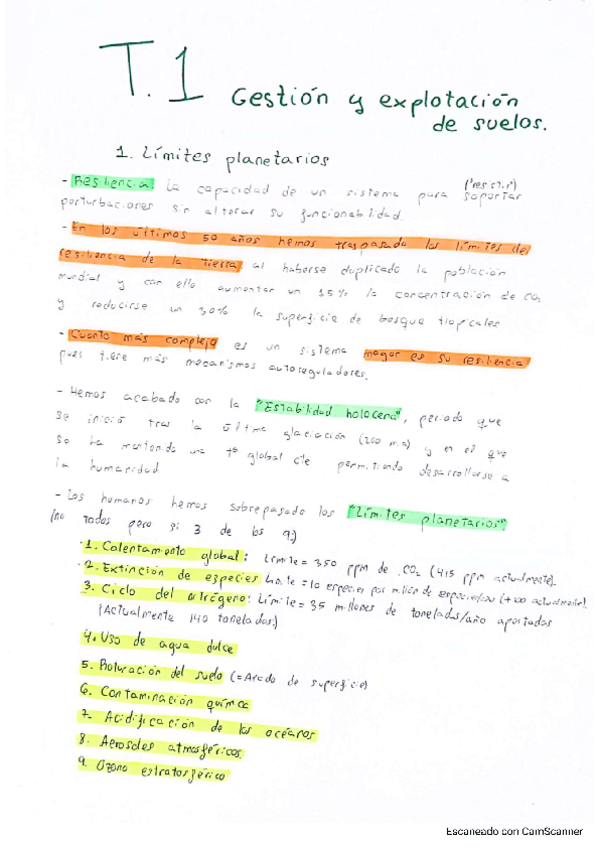 T.1 Gestión y explotación
de suelos.
1. Límites planetarios
- Resiliencia: la capacidad de un sistema para soportar ("resistir")
perturbaciones sin alterar su funcionabilidad.
- En los últimos 50 años hemos traspasado los límites de
resiliencia de la tierra, al haberse duplicado la población
mundial y con ello aumentar un 15% la concentración de CO2
y reducirse un 30% la superficie de bosque tropicales
- Cuanto más complejo es un sistema mayor es su resiliencia
pues tiene más mecanismos autoreguladores.
- Hemos acabado con la "Estabilidad holocena", periodo que
se inició tras la última glaciación (200 m.a) y en el que
se ha mantenido una Tª global cte permitiendo desarrollarse a
la humanidad
- Los humanos hemos sobrepasado los "Límites planetarios"
(no todos pero si 3 de los 9:)
· 1. Calentamento global: Límite = 350 ppm de CO2 (415 ppm actualmente).
· 2. Extinción de especies Límite = 10 especies por millón de especies/año (+100 actualmente).
3. Ciclo del nitrógeno: Límite = 35 millones de toneladas/año aportadas
(Actualmente 140 toneladas.)
4. Uso de agua dulce
5. Roturación del suelo (= Arado de superficie)
6. Contaminación química
7. Acidificación de los océanos
8. Aerosoles atmosféricos.
9. Ozono estratosférico
Escaneado con CamScanner